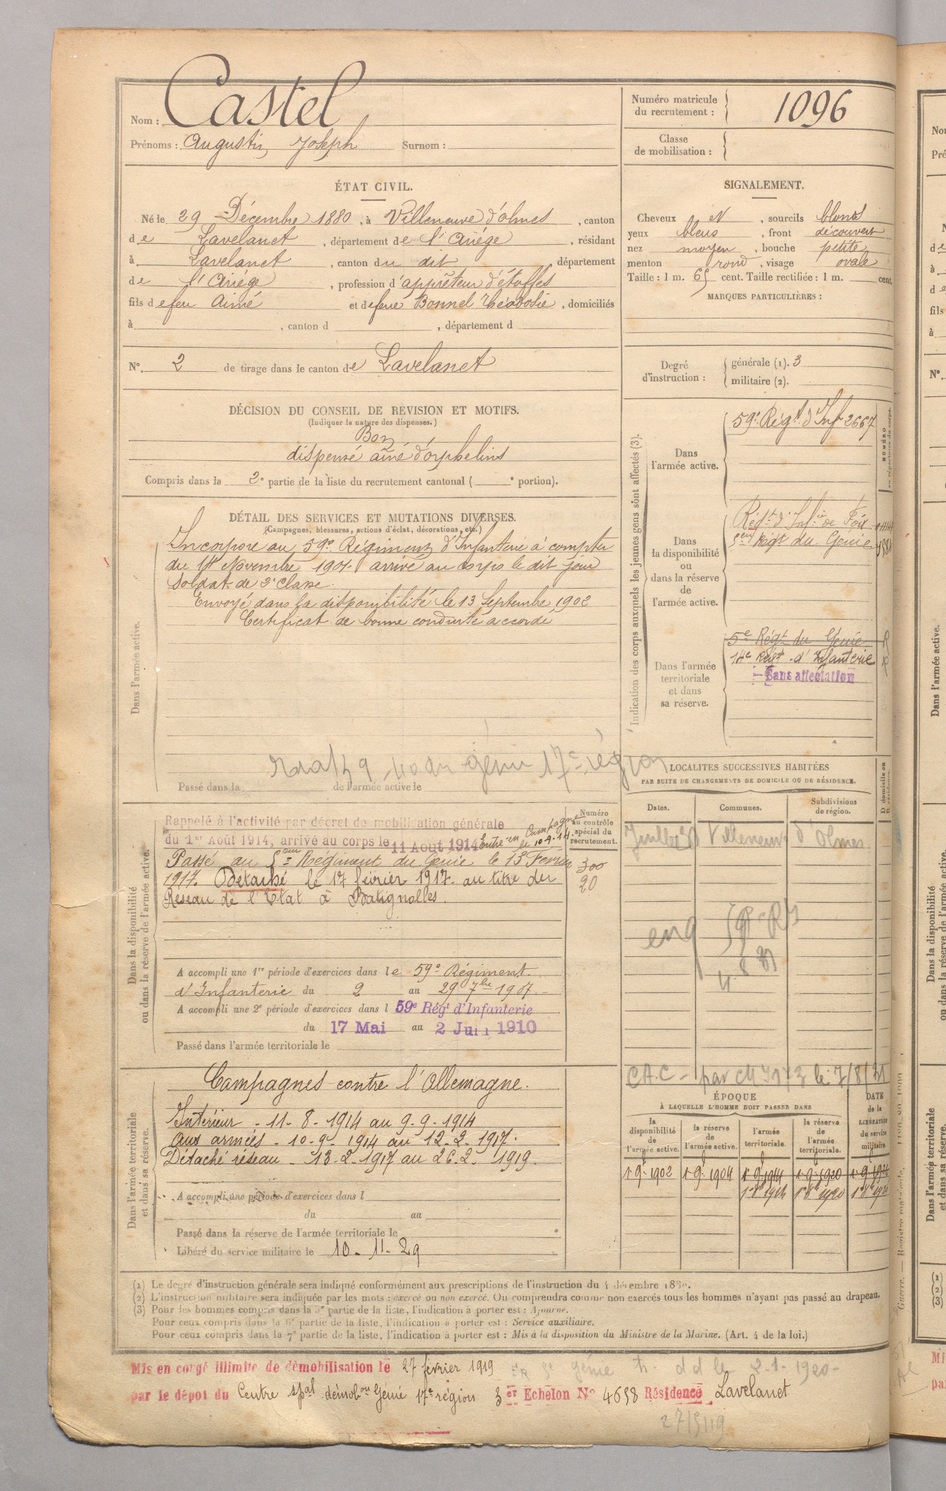 Nom : Castel
Prénoms : Augustin Joseph Surnom :
Numéro matricule du recrutement : 1096
Classe de mobilisation :
ÉTAT CIVIL.
Né le 29 Décembre 1880, à Villeneuve d'olmes, canton
de Lavelanet, département de l'Ariège, résidant
à Lavelanet, canton du dit, département
de l'Ariège, profession d'appréteur d'étoffes
fils de feu Aimé et de feue Bonnel Théodosie, domiciliés
à , canton d , département d
N° 2 de tirage dans le canton de Lavelanet
SIGNALEMENT.
Cheveux et, sourcils blonds
yeux bleus, front découvert
nez moyen, bouche petite
menton rond, visage ovale
Taille : 1 m. 65 cent. Taille rectifiée : 1 m. cent.
MARQUES PARTICULIÈRES :
Degré d'instruction :
générale (1). 3
militaire (2).
DÉCISION DU CONSEIL DE RÉVISION ET MOTIFS.
(Indiquer la nature des dispenses.)
Bon
dispensé aîné d'orphelins
Compris dans la 2e partie de la liste du recrutement cantonal ( e portion).
DÉTAIL DES SERVICES ET MUTATIONS DIVERSES.
(Campagnes, blessures, actions d'éclat, décorations, etc.)
Dans l'armée active.
Incorporé au 59e Régiment d'Infanterie à compter
du Novembre 1901 arrivé au corps le dit jour
Soldat de 2e classe.
Envoyé dans la disponibilité le 13 Septembre 1902
Certificat de bonne conduite accordé
génie 17e région
Passé dans la de l'armée active le
Indication des corps auxquels les jeunes gens sont affectés (3).
Dans l'armée active.
59e Régt d'Inf 2667
Dans la disponibilité ou dans la réserve de l'armée active.
Régt d'Infie de Foix
Régt du Génie
Dans l'armée territoriale et dans sa réserve.
5e Régt du Génie
Régt d'Infanterie
Sans affectation
LOCALITÉS SUCCESSIVES HABITÉES
PAR SUITE DE CHANGEMENTS DE DOMICILE OU DE RÉSIDENCE.
Dates. Communes. Subdivisions de région.
Villeneuve d'Olmes
Dans la disponibilité ou dans la réserve de l'armée active.
Numéro au contrôle spécial du recrutement.
300
20
Rappelé à l'activité par décret de mobilisation générale
du 1er Août 1914, arrivé au corps le 11 Août 1914 Entré en Campagne le 10-9-14
Passé au 5eme Régiment du Génie le 13 Février
1917. Détaché le 17 février 1917 au titre du
Réseau de l'Etat à Batignolles.
A accompli une 1re période d'exercices dans le 59e Régiment
d'Infanterie du 2 au 29 7bre 1907.
A accompli une 2e période d'exercices dans l 59e Régt d'Infanterie
du 17 Mai au 2 Juin 1910
Passé dans l'armée territoriale le
Dans l'armée territoriale et dans sa réserve.
Campagnes contre l'Allemagne.
Intérieur - 11-8-1914 au 9-9-1914
Aux armées - 10-9-1914 au 12-2-1917.
Détaché réseau - 13-2-1917 au 26-2-1919.
A accompli une période d'exercices dans l
du au
Passé dans la réserve de l'armée territoriale le
Libéré du service militaire le 10-11-29
ÉPOQUE
À LAQUELLE L'HOMME DOIT PASSER DANS
la disponibilité de l'armée active.
la réserve de l'armée active.
l'armée territoriale.
la réserve de l'armée territoriale.
DATE de la LIBÉRATION du service militaire.
1 9bre 1902 1 9bre 1904
(1) Le degré d'instruction générale sera indiqué conformément aux prescriptions de l'instruction du 4 décembre
(2) L'instruction militaire sera indiquée par les mots : exercé ou non exercé. On comprendra comme non exercés tous les hommes n'ayant pas passé au drapeau.
(3) Pour les hommes compris dans la 5e partie de la liste, l'indication à porter est : Ajourné.
Pour ceux compris dans la 6e partie de la liste, l'indication à porter est : Service auxiliaire.
Pour ceux compris dans la 7e partie de la liste, l'indication à porter est : Mis à la disposition du Ministre de la Marine. (Art. 4 de la loi.)
Mis en congé illimité de démobilisation le 27 février 1919
par le dépôt du Centre spal démobon Génie 17e région 3er Echelon N° 4658 Résidence Lavelanet